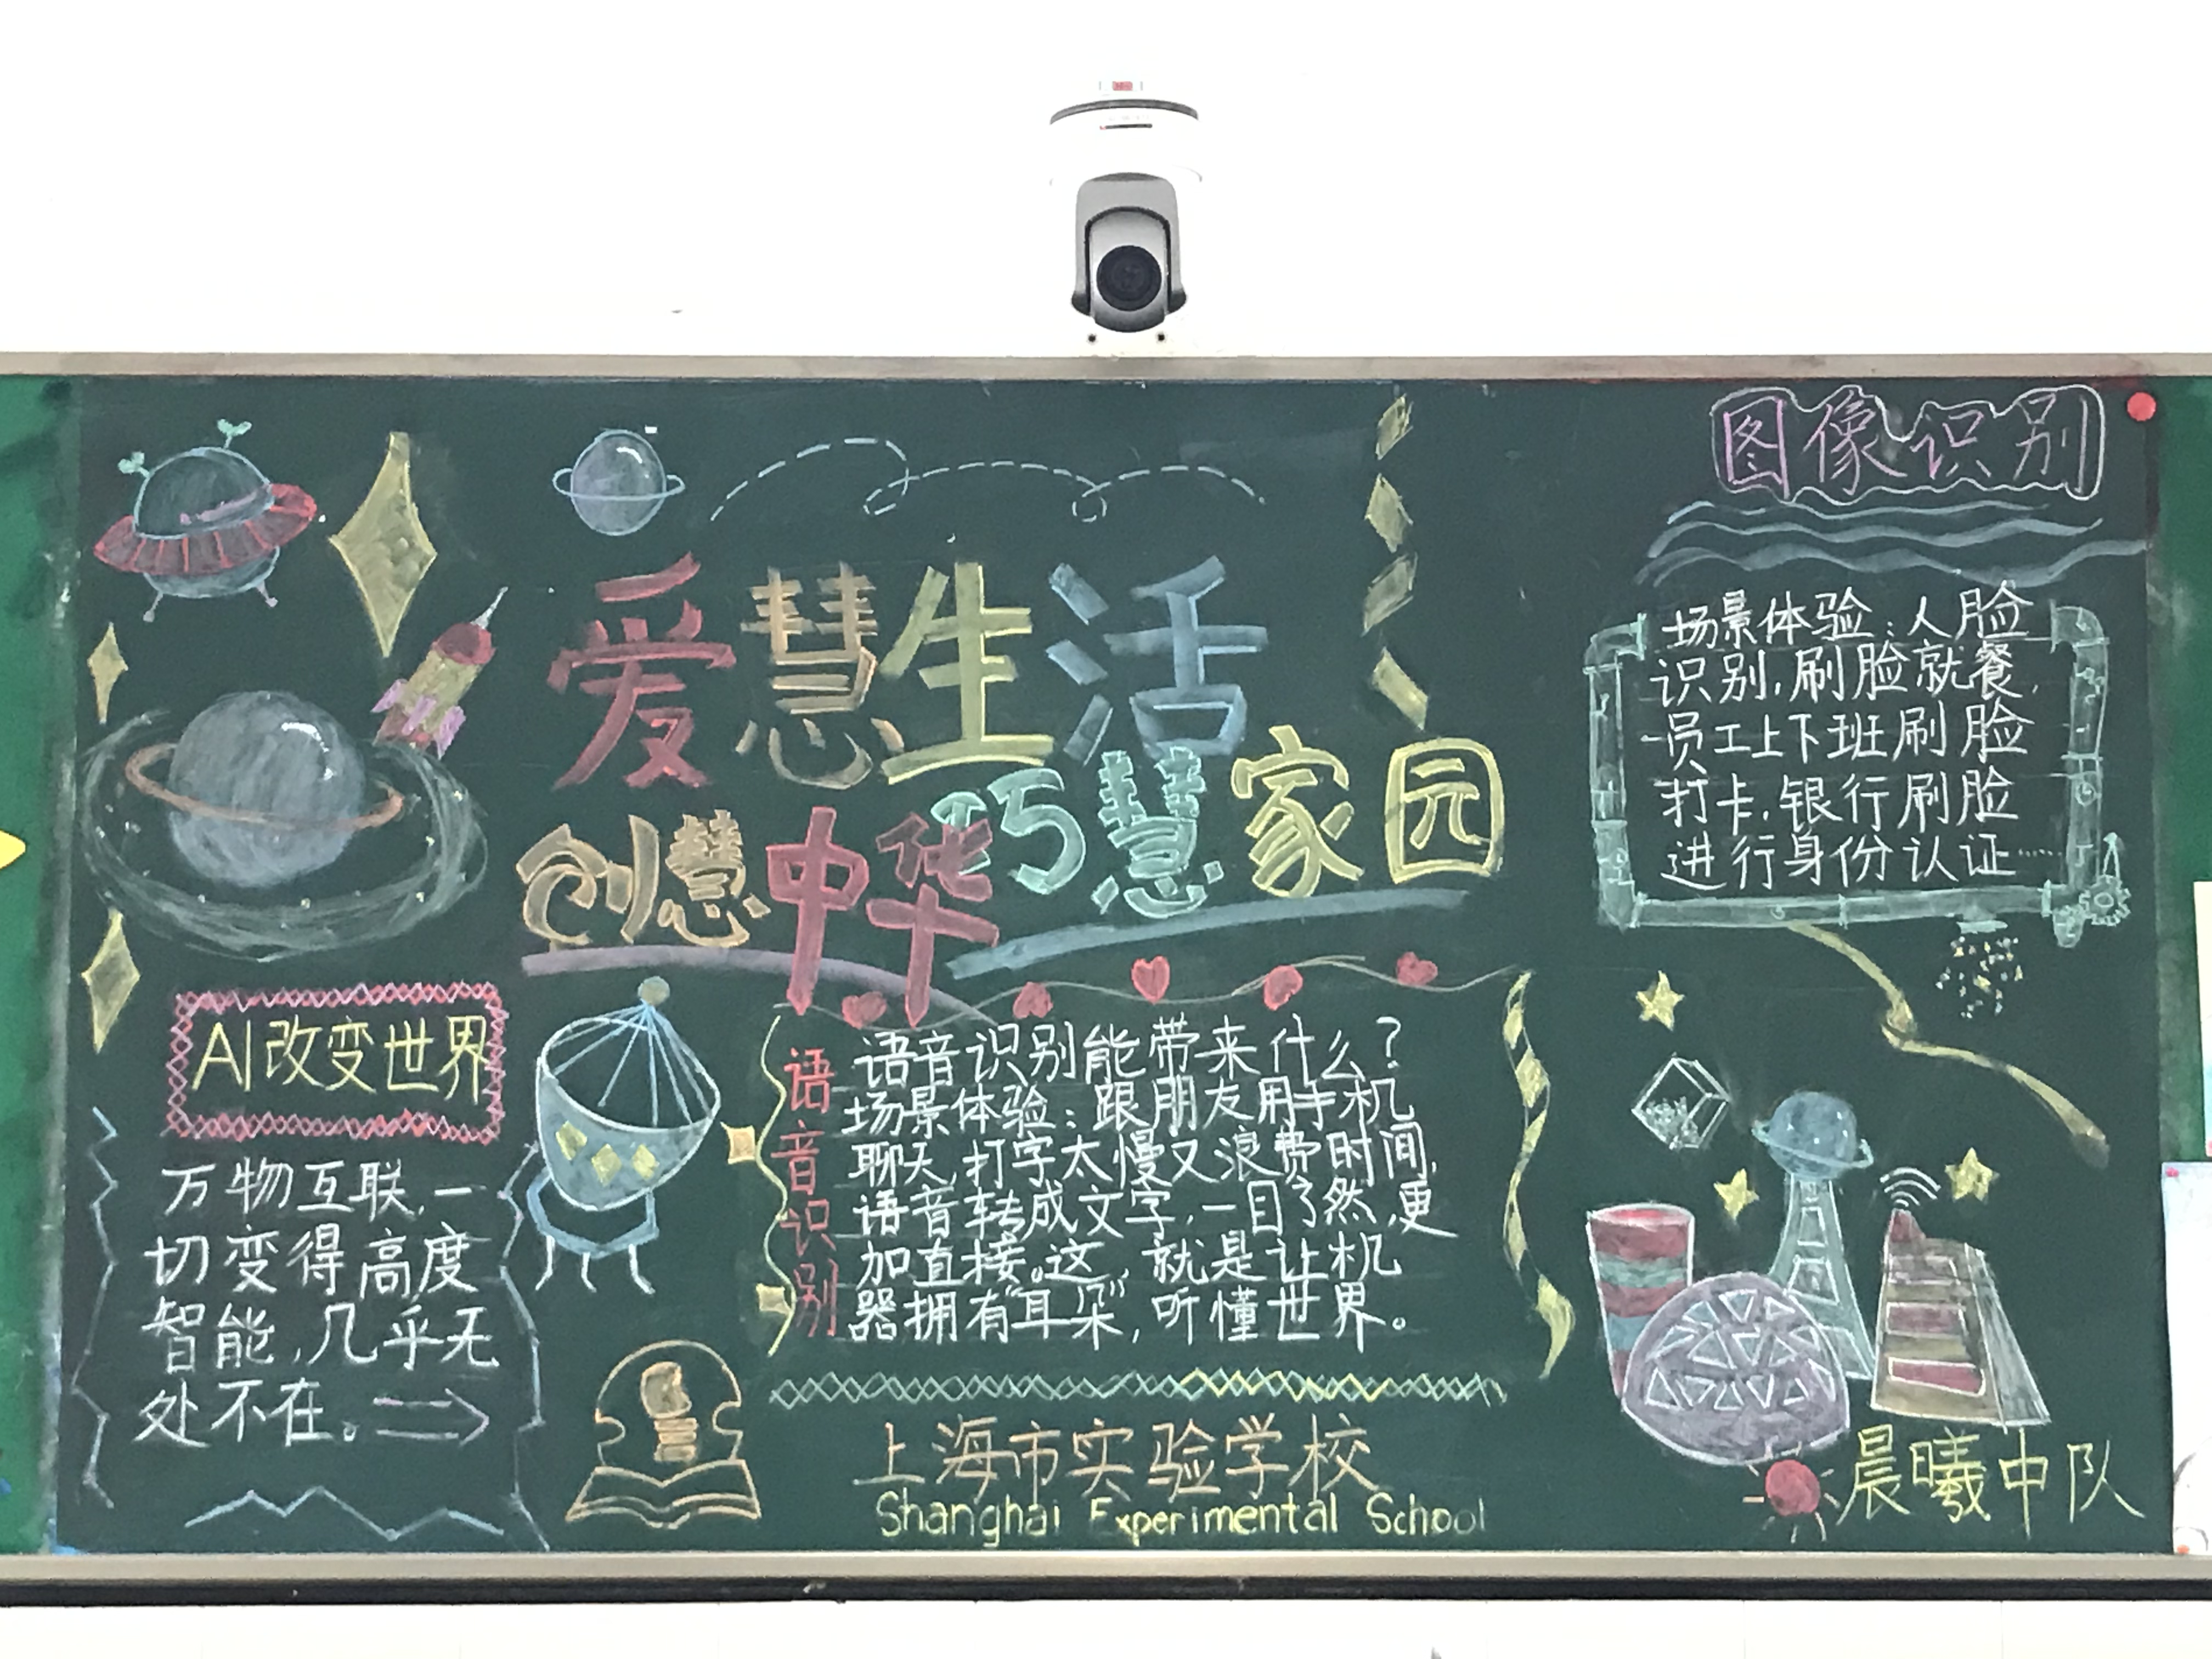 图像识别
爱慧生活
巧慧家园
创慧中华
场景体验：人脸
识别，刷脸就餐，
员工上下班刷脸
打卡，银行刷脸
进行身份认证……
AI改变世界
万物互联，一
切变得高度
智能，几乎无
处不在。
语音识别
语音识别能带来什么？
场景体验：跟朋友用手机
聊天，打字太慢又浪费时间，
语音转成文字，一目了然，更
加直接。这，就是让机
器拥有“耳朵”，听懂世界。
上海市实验学校
Shanghai Experimental School
晨曦中队